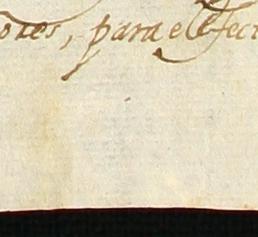 ores, para el efect